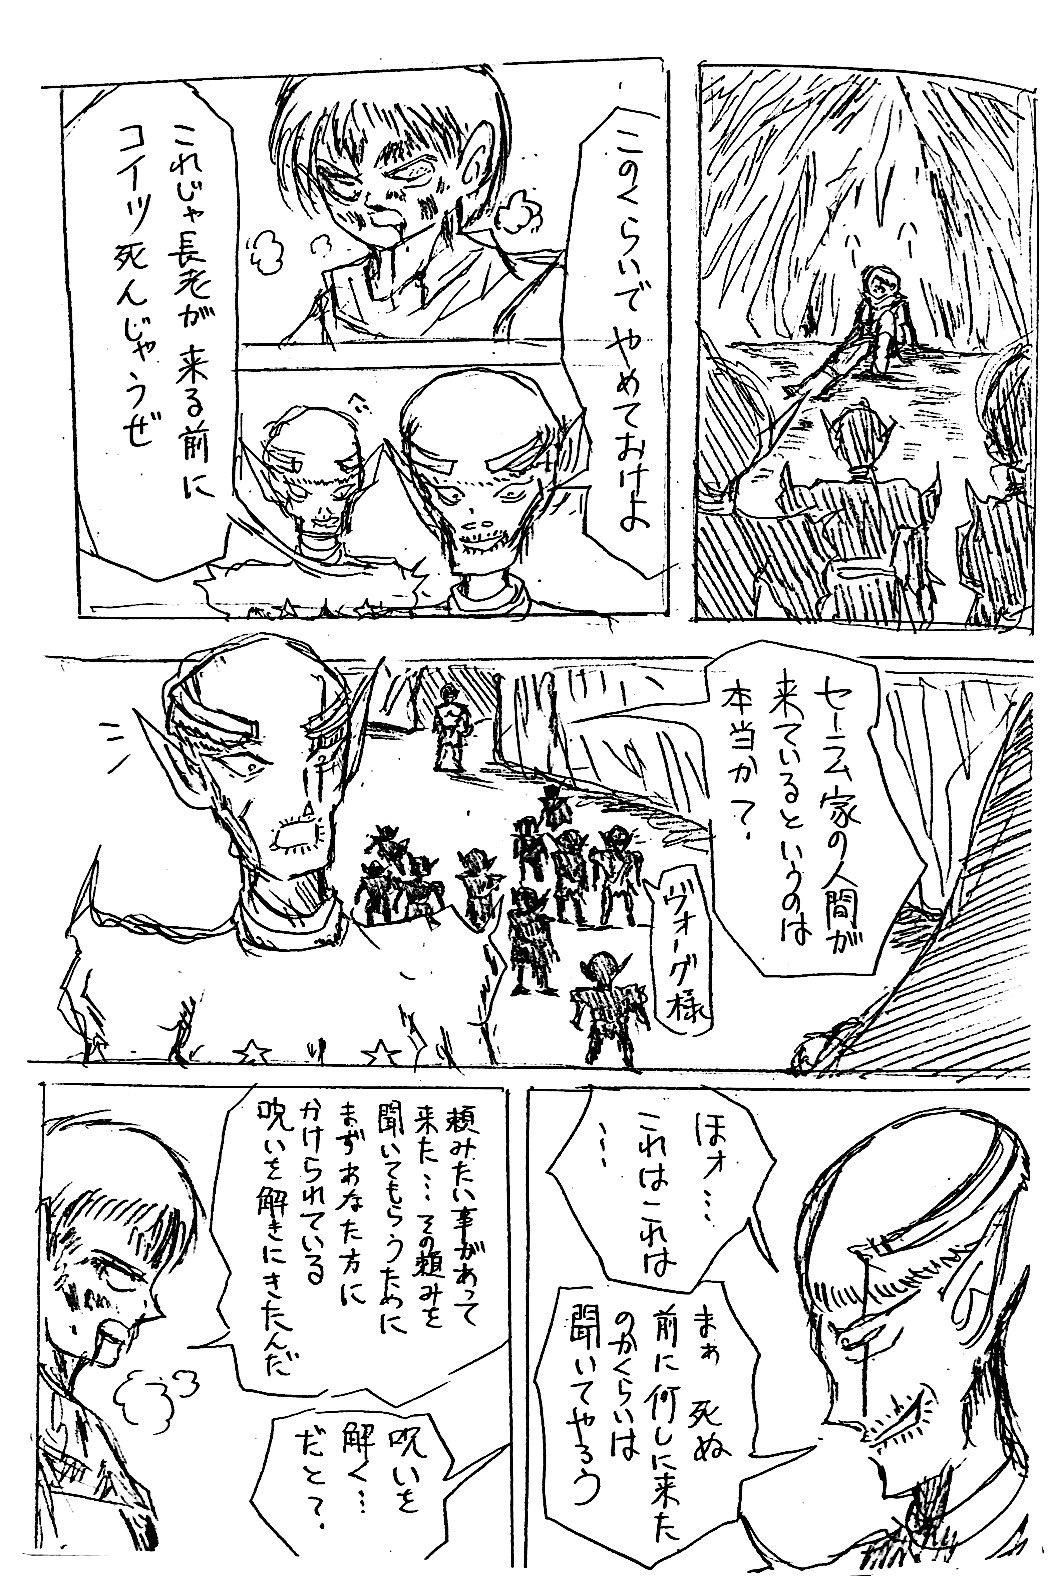 このくらいでやめておけよ
これじゃ長老が来る前に
コイツ死んじゃうぜ
セーム家の人間が
来ているというのは
本当か？
ヴォーグ様
ほォ…
これはこれは
…
まぁ死ぬ
前に何しに来た
のかくらいは
聞いてやろう
頼みたい事があって
来た…その頼みを
聞いてもらうために
まずあなた方に
かけられている
呪いを解きにきたんだ
呪いを
解く…
だと？